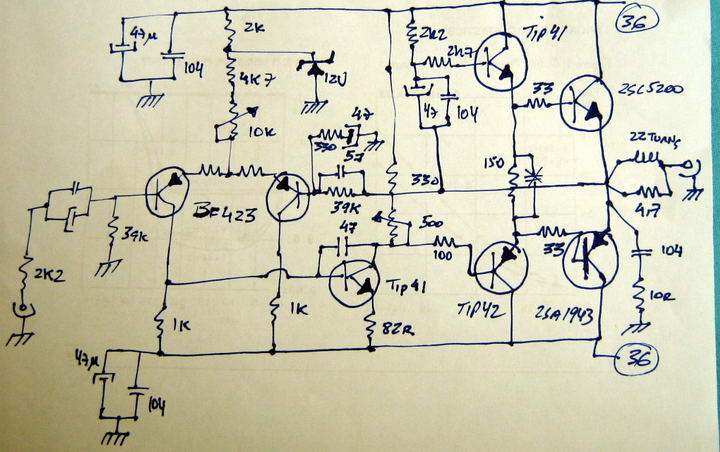 36
47µ
104
2K
4K7
12V
10K
2K2
2K7
Tip41
33
2SC5200
47
104
47
330
57
39K
330
150
22 Turns
4r7
BF423
39K
2K2
47
500
100
Tip41
33
104
10R
TIP42
2SA1943
1K
1K
82R
36
47µ
104